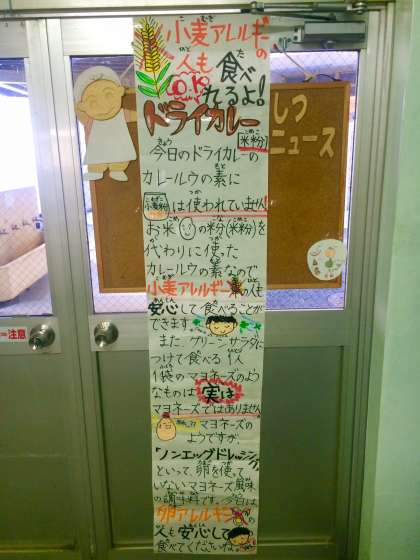 小麦アレルギーの
人も
O.K
食べ
れるよ!
ドライカレー
米粉
今日のドライカレーの
カレールウの素に
小麦粉は使われていません
お米の粉(米粉)を
代わりに使った
カレールウの素なので
小麦アレルギーの人も
安心して食べることが
できます。
また、グリーンサラダに
つけて食べる1人
1袋のマヨネーズのよう
なものは実は
マヨネーズではありません
マヨネーズの
ようですが
「ノンエッグドレッシング」
といって、卵を使って
いないマヨネーズ風味
の調味料です。今日は
卵アレルギーの
人も安心して
食べてくださいね。
しつ
ニュース
注意